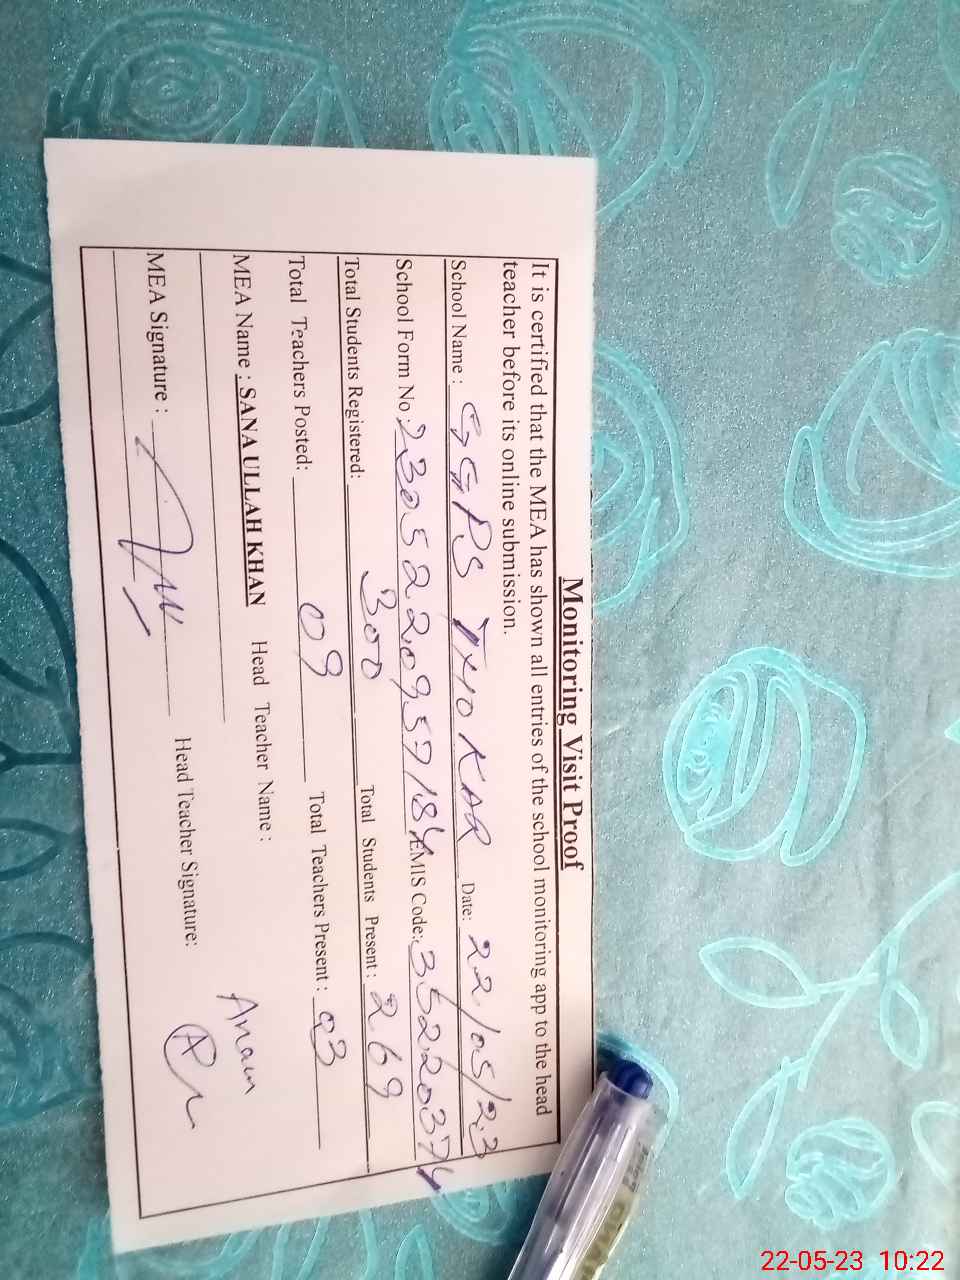 Monitoring Visit Proof
It is certified that the MEA has shown all entries of the school monitoring app to the head
teacher before its online submission.
School Name : GGPS Date: 22/05/23
School Form No : EMIS Code: 35220374
Total Students Registered: 300 Total Students Present : 269
Total Teachers Posted: 09 Total Teachers Present : 03
MEA Name : SANA ULLAH KHAN Head Teacher Name : Anam
MEA Signature : Head Teacher Signature:
22-05-23 10:22